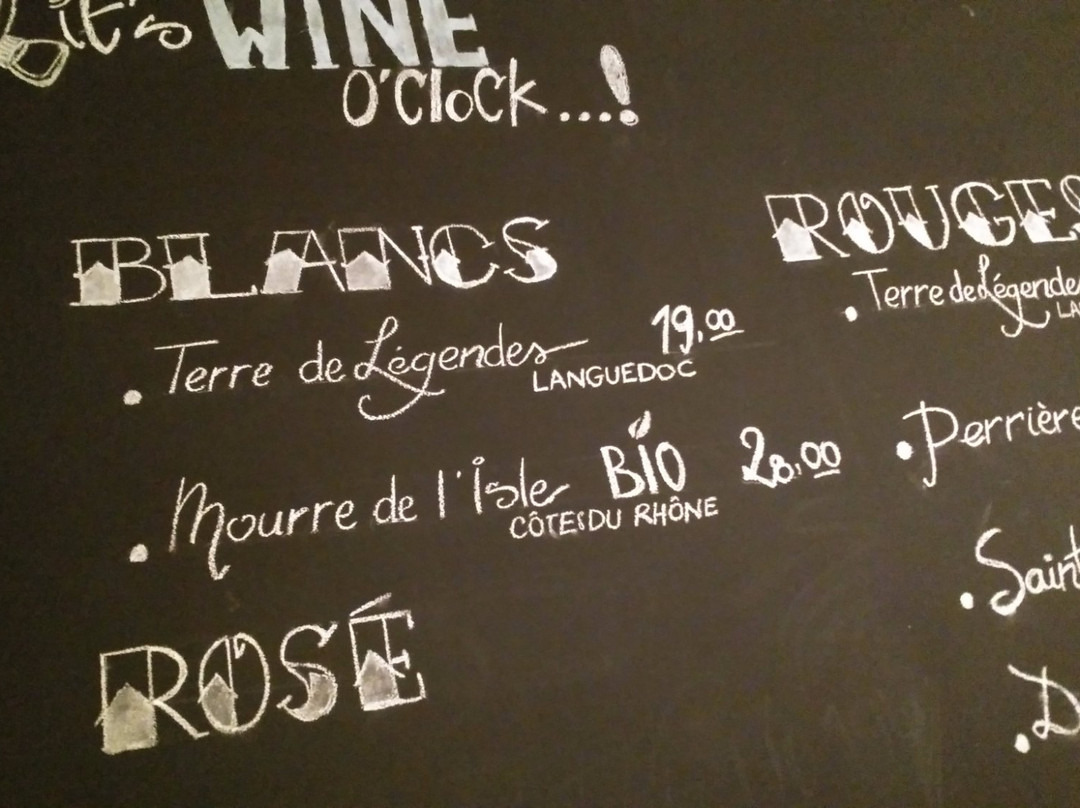 it's WINE
O'Clock...!
BLANCS
• Terre de Légendes 19,00
LANGUEDOC
• Mourre de l'Isle BIO 28,00
CÔTES DU RHÔNE
ROSÉ
ROUGES
• Terre de Légendes
LA
• Perrière
• Saint
• D